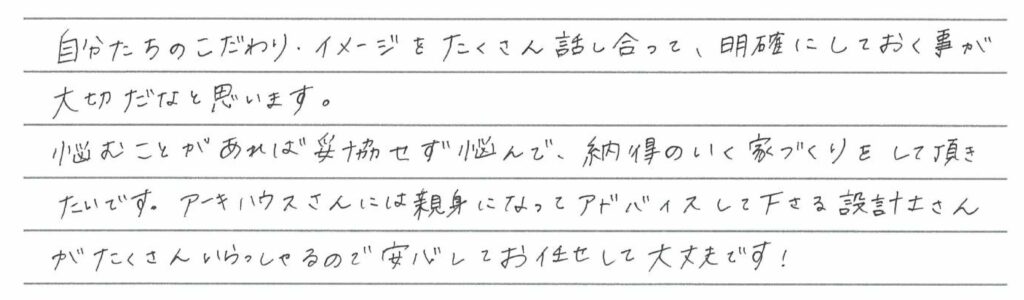 自分たちのこだわり・イメージをたくさん話し合って、明確にしておく事が
大切だなと思います。
悩むことがあれば妥協せず悩んで、納得のいく家づくりをして頂き
たいです。アーキハウスさんには親身になってアドバイスして下さる設計士さん
がたくさんいらっしゃるので安心してお任せして大丈夫です!